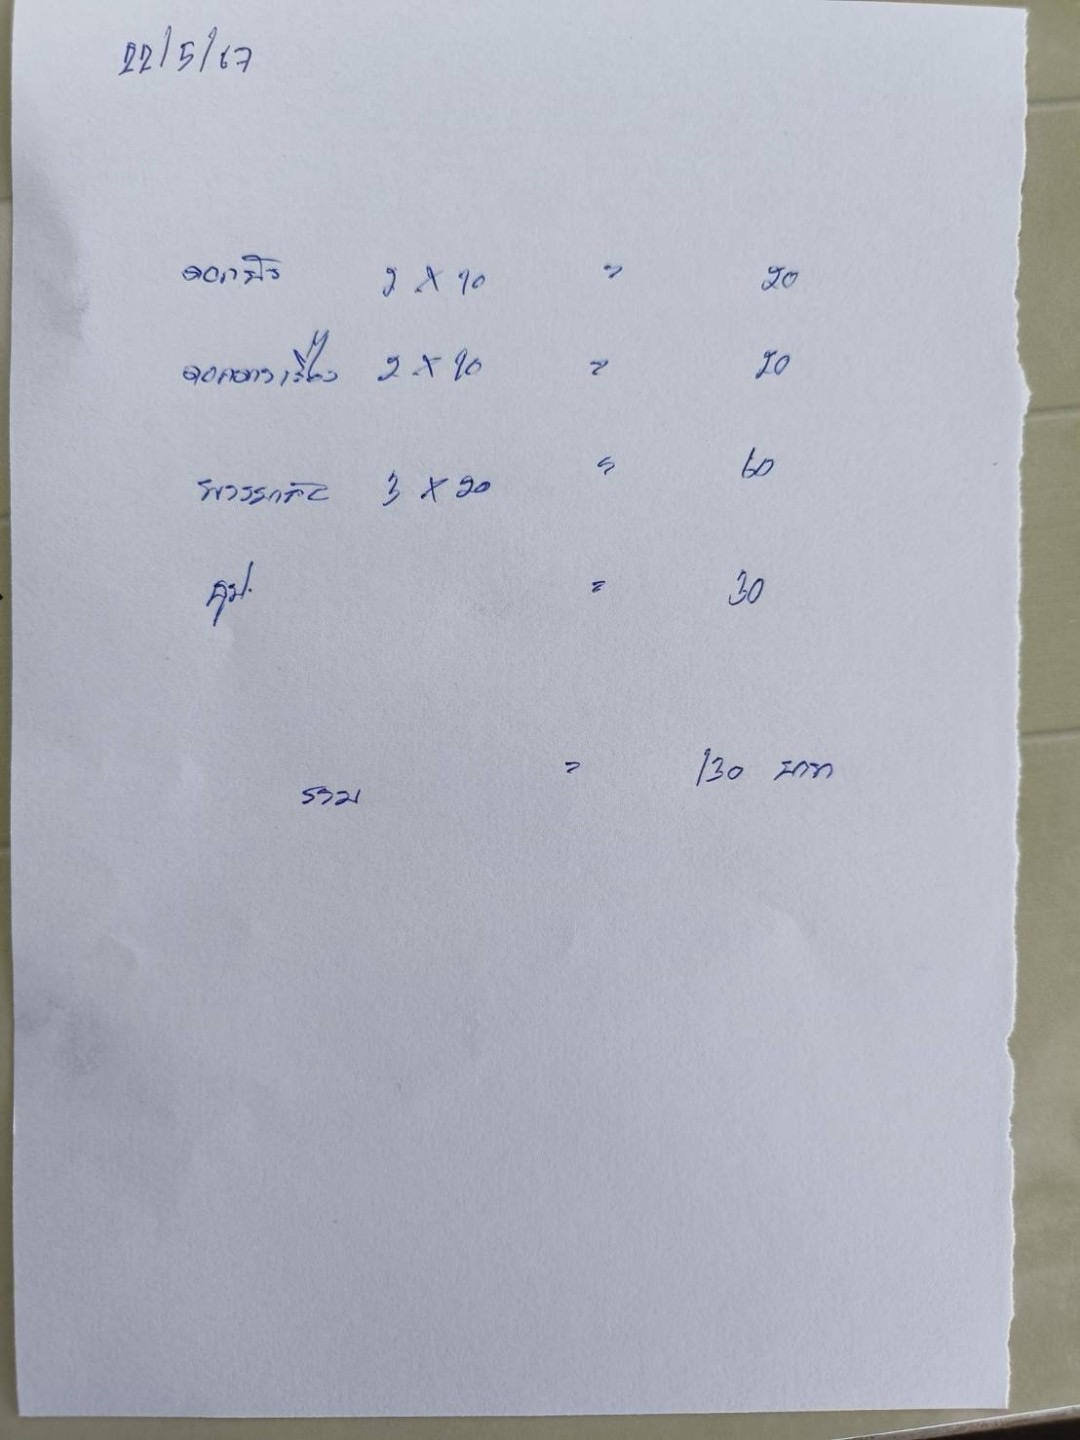 22/5/67
ดอกรัก 2 X 10 = 20
ดอกดาวเรือง 2 X 10 = 20
3 X 20 = 60
ธูป = 30
รวม = 130 บาท